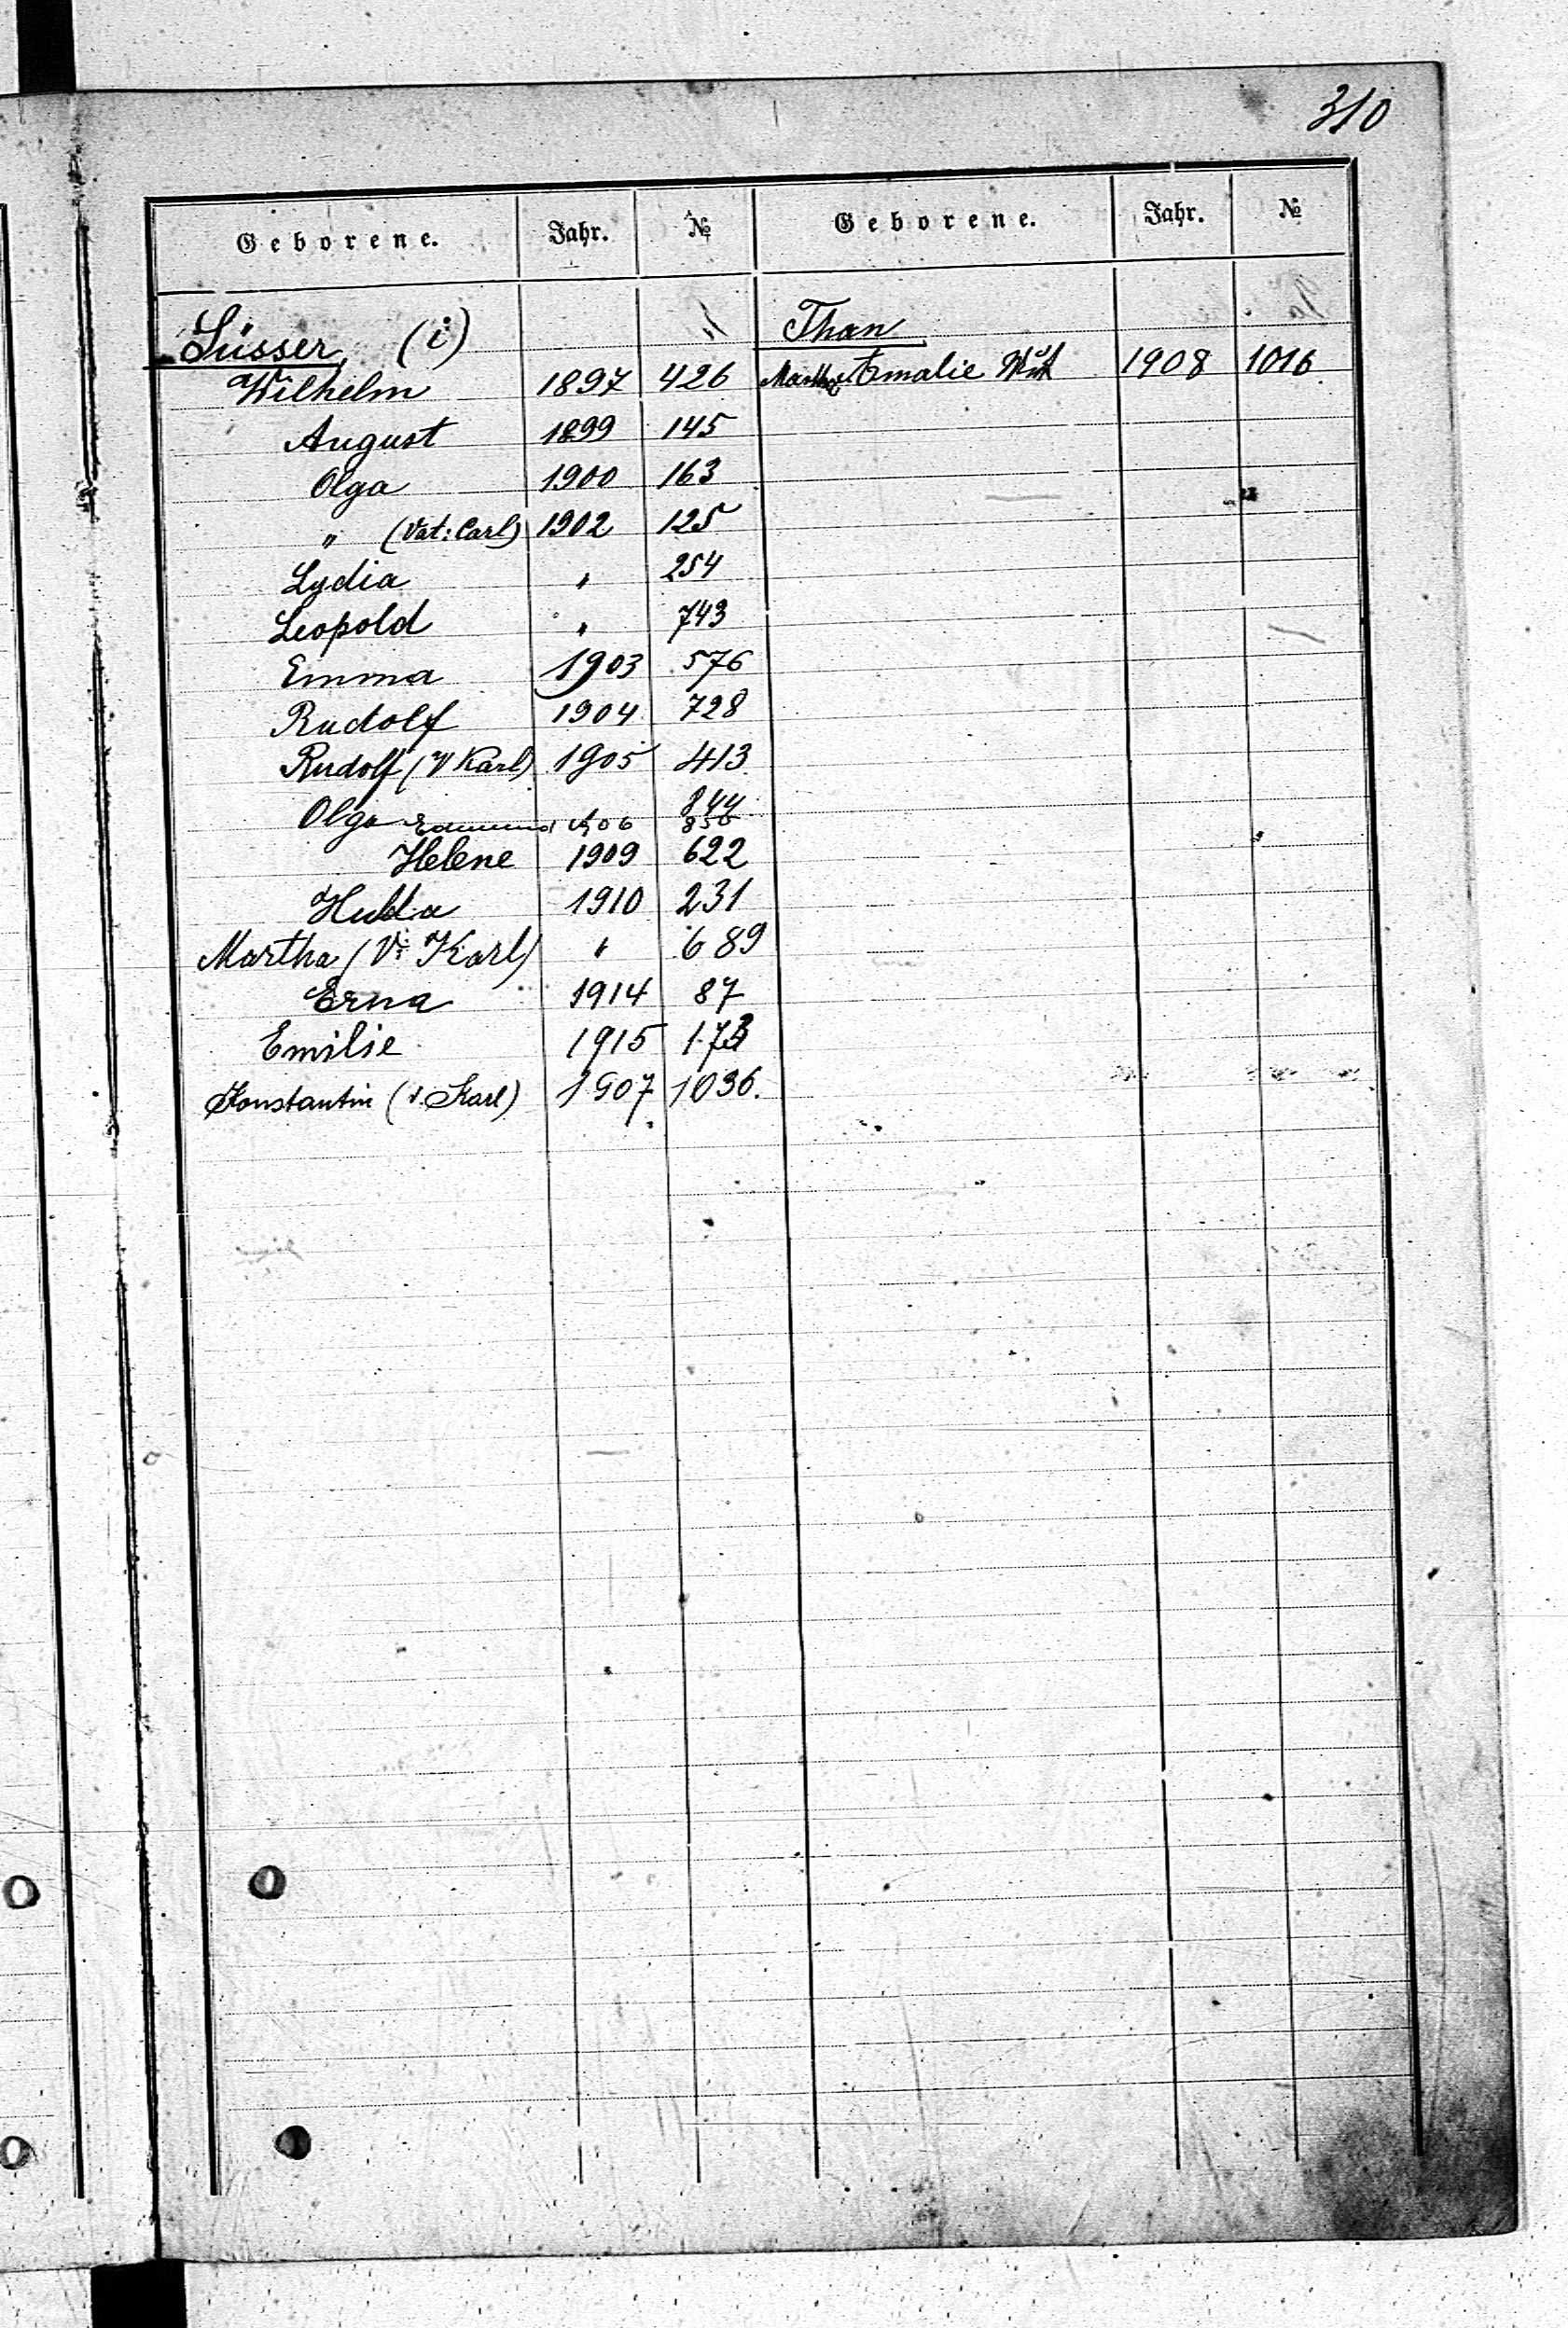 310
Geborene. Jahr. № Geborene. Jahr. №
Süsser, (i)
Wilhelm 1897 426
August 1899 145
Olga 1900 163
" (Vat: Carl) 1902 125
Lydia " 254
Leopold " 743
Emma 1903 576
Rudolf 1904 728
Rudolf (V Karl) 1905 413
Olga 844
Edmund 1906 856
Helene 1909 622
Hulda 1910 231
Martha (V: Karl) " 689
Erna 1914 87
Emilie 1915 173
Konstantin (v. Karl) 1907 1036.
Than
Martha Amalie 1908 1016